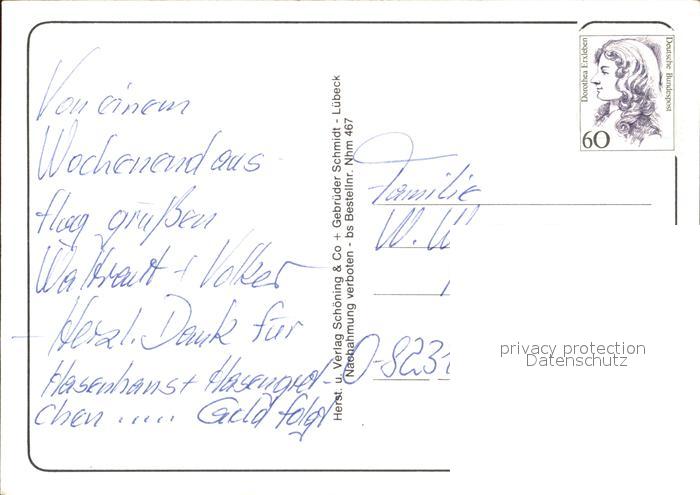 Von einem
Wochenendaus-
flug grüßen
Waltraut + Volker
- Herzl. Dank für
Hasenhans + Hasengret-
chen ..... Geld folgt
Herst. u. Verlag Schöning & Co + Gebrüder Schmidt - Lübeck
Nachahmung verboten - bs Bestellnr. Nhm 467
Dorothea Erxleben
Deutsche Bundespost
60
Familie
W.
D-8231
privacy protection
Datenschutz